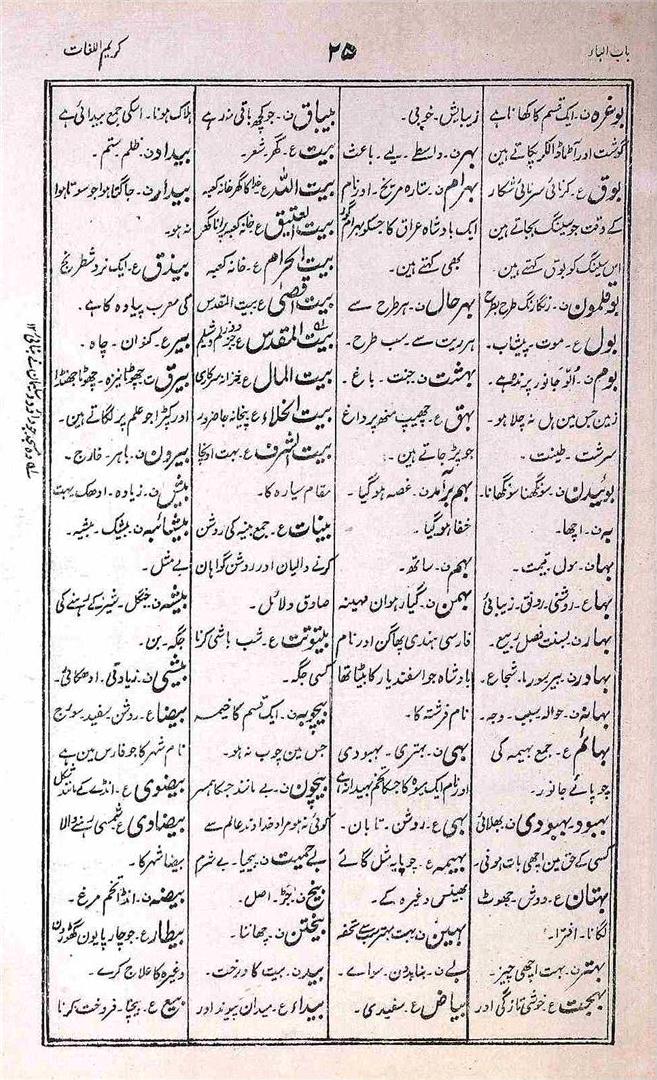 باب الباء
۲۵
کریم اللغات
بوغرہ ن۔ ایک قسم کا کھانا ہے
گوشت اور آٹا ڈالکر پکاتے ہین
بوق ع۔ کرنائی سرنائی شکار
کے وقت جو سینگ بجاتے ہین
اس سینگ کو بوق کہتے ہین۔
بوقلمون ن۔ رنگارنگ طرح بطرح
بول ع۔ موت۔ پیشاب۔
بوم ن۔ اُلّو جانور پرندہ ہے۔
زمین جس مین ہل نہ چلا ہو۔
سرشت۔ طینت۔
بوئیدن ن۔ سونگھنا سونگھانا۔
بہ ن۔ اچھا۔
بہا ن۔ مول قیمت۔
بہاء ع۔ روشنی۔ رونق۔ زیبائی
بہار ن۔ بسنت فصل ربیع۔
بہادر ن۔ بیر سورما۔ شجاع۔
بہانہ ن۔ حوالہ سبب۔ وجہ۔
بہائم ع۔ جمع بہیمہ کی
چوپائے جانور۔
بہبود۔ بہبودی ن۔ بھلائی
کسی کے حق مین اچھی بات ہونی۔
بہتان ع۔ دوش۔ جھوٹ
لگانا۔ افترا۔
بہتر ن۔ بہت اچھی چیز۔
بہجت ع۔ خوشی تازگی اور
زیبایش۔ خوبی۔
بہر ن۔ واسطے۔ لیے۔ باعث
بہرام ن۔ ستارہ مریخ۔ اور نام
ایک بادشاہ عراق کا جسکو بہرام گور
بھی کہتے ہین۔
بہرحال ن۔ ہر طرح سے
ہر ریت سے سب طرح۔
بہشت ن۔ جنت۔ باغ۔
بہق ع۔ چھیپ منھ پر داغ
جو پڑ جاتے ہین۔
بہم برآمد ن۔ غصہ ہو گیا۔
خفا ہو گیا۔
بہم ن۔ ساتھ۔
بہمن ن۔ گیارہوان مہینہ
فارسی ہندی پھاگن اور نام
بادشاہ جو اسفندیار کا بیٹا تھا
نام فرشتہ کا۔
بہی ن۔ بہتری۔ بہبودی
اور نام ایک میوہ کا جسکا تخم بہیدانہ ہے
بہی ع۔ روشن۔ تابان۔
بہیمہ ع۔ چوپایہ مثل گائے
بھینس وغیرہ کے۔
بہین ن۔ بہت بہتر سب سے تحفہ
بے ن۔ بنا بدون۔ سواے۔
بیاض ع۔ سفیدی۔
بیباق ن۔ جو کچھ باقی نہ رہے
بیت ع۔ گھر شعر۔
بیت اللہ ع۔ خدا کا گھر خانہ کعبہ
بیت العتیق ع۔ خانہ کعبہ پرانا گھر
بیت الحرام ع۔ خانہ کعبہ
بیت اقصی ع۔ بیت المقدس
بیت المقدس ع
بیت المال ع۔ خزانہ سرکاری
بیت الخلاء ع۔ پیخانہ جا ضرور
بیت الشرف ع۔ بہت اونچا
مقام سیارہ کا۔
بینات ع۔ جمع بینہ کی روشن
کرنے والیان اور روشن گواہان
صادق دلائل۔
بیتوتت ع۔ شب باشی کرنا
کسی جگہ۔
بیچوبہ ن۔ ایک قسم کا خیمہ
جس مین چوب نہ ہو۔
بیچون ن۔ بے مانند جسکا ہمسر
کوئی نہ ہو مراد خداوند عالم سے
بے حمیت ن۔ بیحیا۔ بے شرم
بیخ ن۔ جڑ۔ اصل۔
بیختن ن۔ چھاننا۔
بید ن۔ بیت کا درخت۔
بیداء ع۔ میدان بیوند اور
ہلاک ہونا۔ اسکی جمع بیدائی ہے
بیداد ن۔ ظلم۔ ستم۔
بیدار ن۔ جاگتا ہوا جو سوتا ہوا
نہ ہو۔
بیذق ع۔ ایک نرد شطرنج
کی معرب پیادہ کا ہے۔
بیر ع۔ کنوان۔ چاہ۔
بیرق ت۔ چھوٹا نیزہ۔ چھوٹا جھنڈا
اور کپڑا جو علم پر لگاتے ہین۔
بیرون ن۔ باہر۔ خارج۔
بیش ن۔ زیادہ۔ ادھک بہت
بیشائبہ ن۔ بیشک۔ بیشبہ۔
بے مثل۔
بیشہ ن۔ جنگل۔ شیر کے رہنے کی
جگہ۔ بن۔
بیشی ن۔ زیادتی۔ ادھکائی۔
بیضا ع۔ روشن سفید سورج
نام شہر کا جو فارس مین ہے
بیضوی ع۔ انڈے کے مانند شکل
بیضاوی ع۔ رہنے والا
بیضا شہر کا۔
بیضہ ن۔ انڈا تخم مرغ۔
بیطار ع۔ جو چارپایون گھوڑون
وغیرہ کا علاج کرے۔
بیع ع۔ بیچنا۔ فروخت کرنا